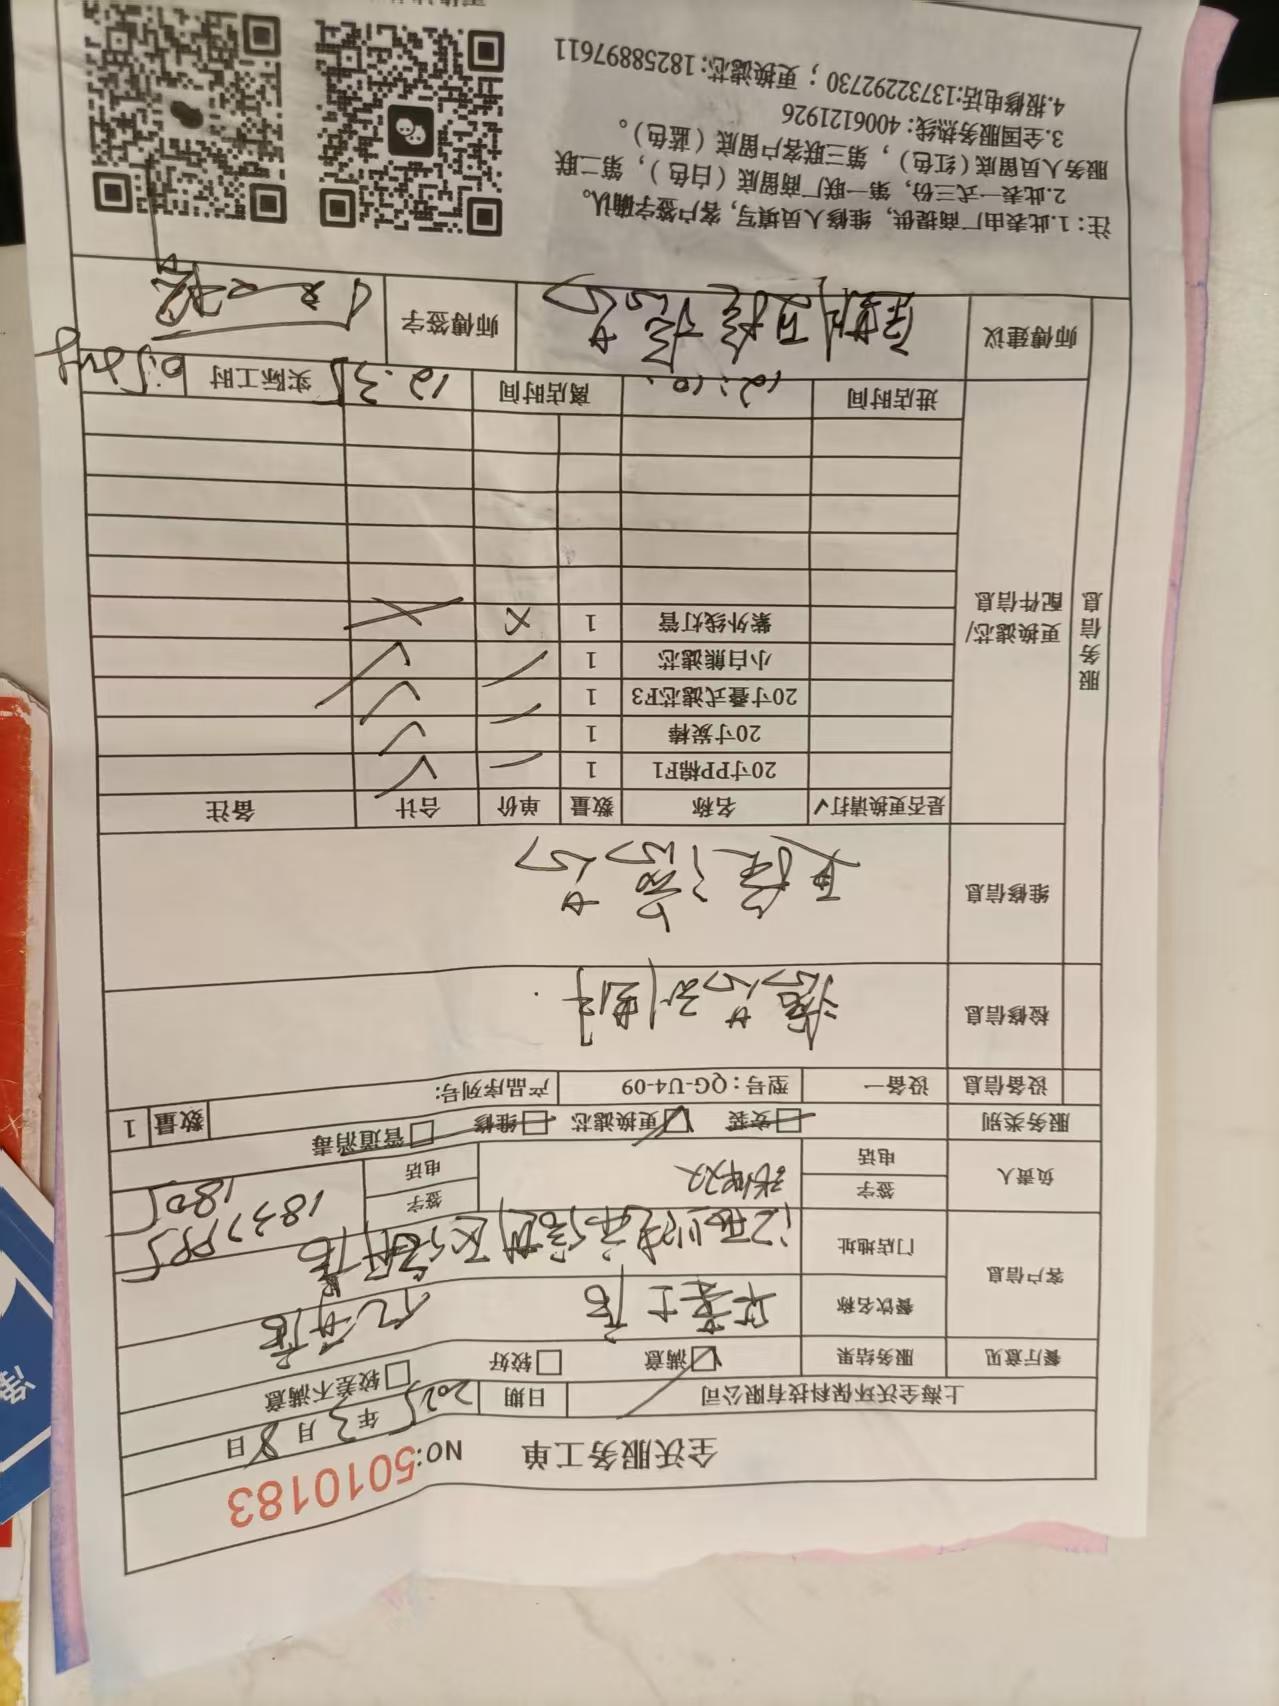 全沃服务工单 NO:5010183
上海全沃环保科技有限公司 日期 2025年3月8日
餐厅意见 服务结果 满意 较好 较差不满意
客户信息 餐饮名称
门店地址
负责人 签字 签字 1837995
电话 电话 1805
服务类别 安装 更换滤芯 维修 管道消毒 数量 1
设备信息 设备一 型号：QG-U4-09 产品序列号：
检修信息 滤芯到期
服务信息
维修信息 更换滤芯
更换滤芯/配件信息
是否更换请打√ 名称 数量 单价 合计 备注
20寸PP棉F1 1
20寸炭棒 1
20寸叠式滤芯F3 1
小白熊滤芯 1
紫外线灯管 1
进店时间 12:10 离店时间 12:35 实际工时
师傅建议 定期更换滤芯 师傅签字
注：1.此表由厂商提供，维修人员填写，客户签字确认。
2.此表一式三份，第一联厂商留底（白色），第二联
服务人员留底（红色），第三联客户留底（蓝色）。
3.全国服务热线：4006121926
4.报修电话:13732292730；更换滤芯:18258897611